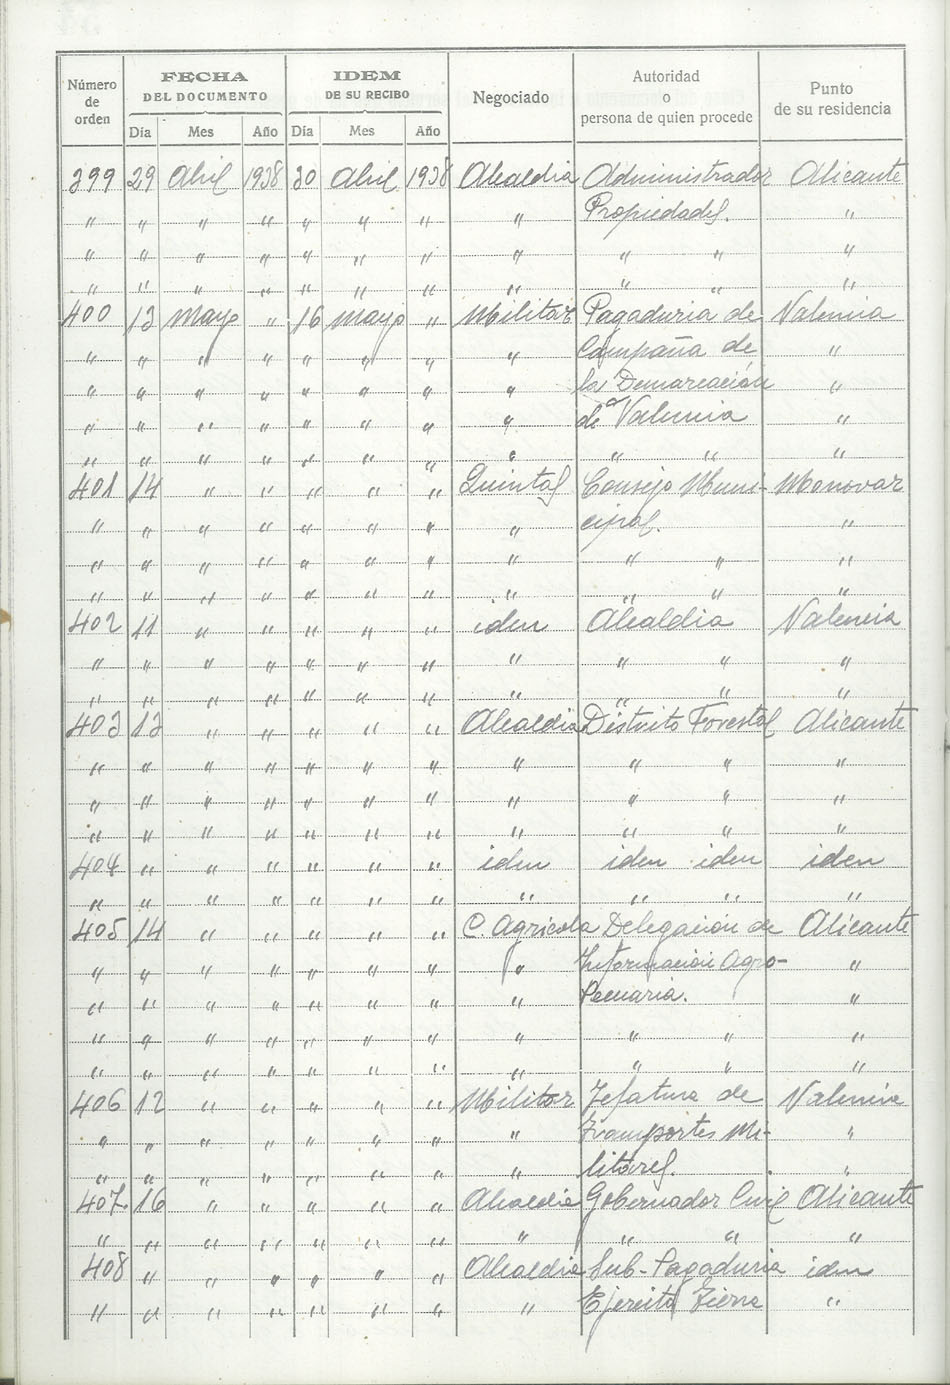 Número de orden | FECHA DEL DOCUMENTO | IDEM DE SU RECIBO | Negociado | Autoridad o persona de quien procede | Punto de su residencia
Día | Mes | Año | Día | Mes | Año
399 29 Abril 1938 30 Abril 1938 Alcaldia Administrador Alicante
" " " " " " " " Propiedades. "
" " " " " " " " " " "
" " " " " " " " " " "
400 13 Mayo " 16 Mayo " Militar Pagaduria de Valencia
" " " " " " " " Campaña de "
" " " " " " " " la Demarcación "
" " " " " " " " de Valencia "
" " " " " " " " " " "
401 14 " " " " " Quintas Consejo Muni- Monovar
" " " " " " " " cipal. "
" " " " " " " " " " "
" " " " " " " " " " "
402 11 " " " " " iden Alcaldia Valencia
" " " " " " " " " " "
" " " " " " " " " " "
403 13 " " " " " Alcaldia Distrito Forestal Alicante
" " " " " " " " " " "
" " " " " " " " " " "
" " " " " " " " " " "
404 " " " " " " iden iden iden iden
" " " " " " " " " " "
405 14 " " " " " C. Agricola Delegación de Alicante
" " " " " " " " Información Agro- "
" " " " " " " " Pecuaria. "
" " " " " " " " " " "
" " " " " " " " " " "
406 12 " " " " " Militar Jefatura de Valencia
" " " " " " " " Transportes Mi- "
" " " " " " " " litares. "
407. 16 " " " " " Alcaldia Gobernador Civil Alicante
" " " " " " " " " " "
408 " " " " " " Alcaldia Sub-Pagaduria iden
" " " " " " " " Ejercito Tierra "